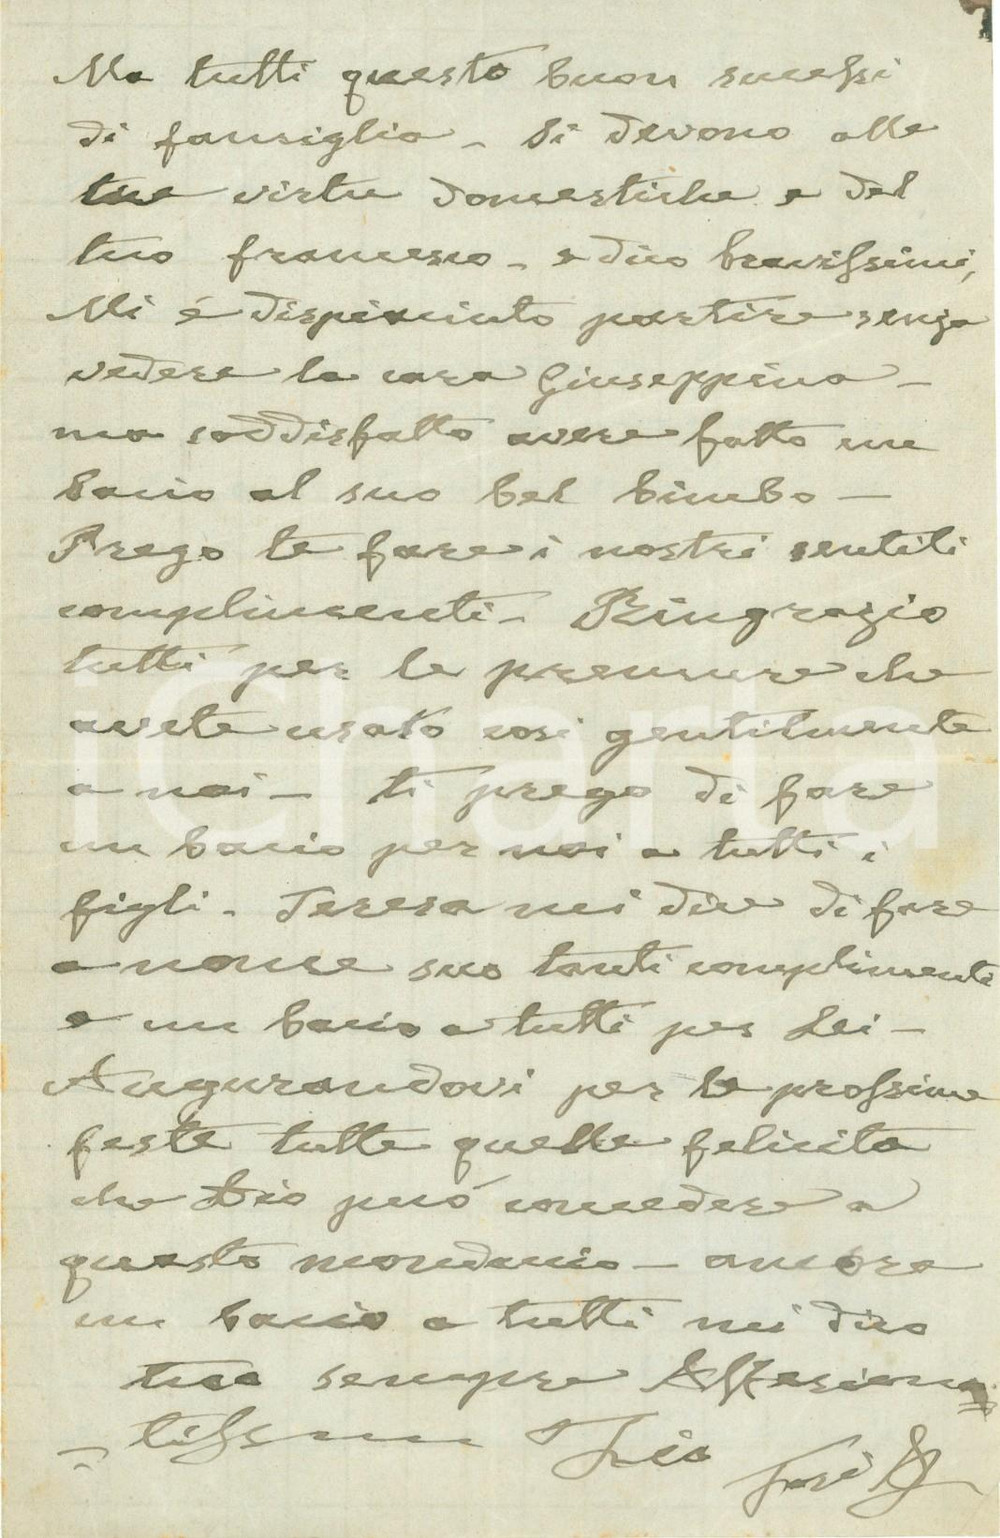 Ma tutti questo buon sucessi
di famiglia - Si devono alle
tue virtu domestiche e del
tuo Francesco - e dico bravissimi,
Mi é dispiaciuto partire senza
vedere la cara Giuseppina -
ma soddisfatto avere fatto un
bacio al suo bel bimbo -
Prego te fare i nostri sentiti
complimenti - Ringrazio
tutti per le premure che
avete usato cosi gentilmente
a noi - ti prego di fare
un bacio per noi a tutti i
figli - Teresa mi dice di fare
a nome suo tanti complimenti
e un bacio a tutti per Lei -
Augurandovi per le prossime
feste tutte quelle felicita
che Dio puó concedere a
questo mondacio - ancora
un bacio a tutti mi dico
tuo sempre Affesiona
tissimo Zio
iCharta